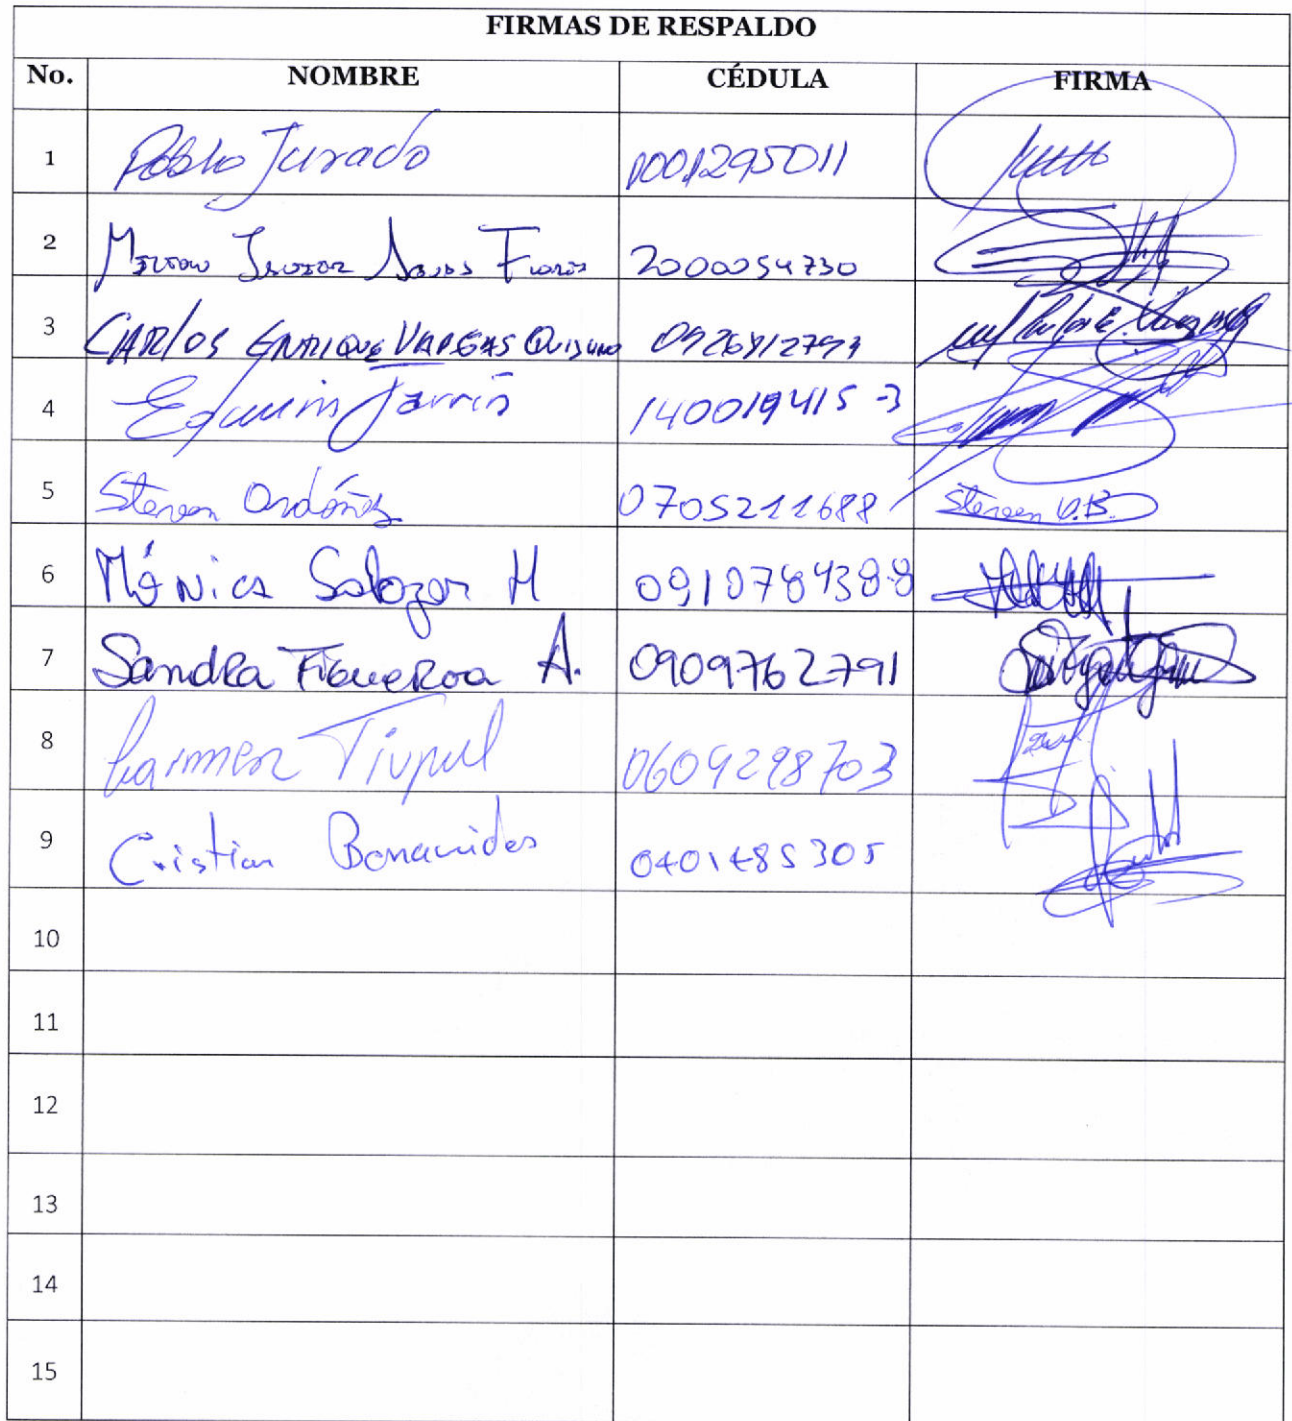 FIRMAS DE RESPALDO
No. NOMBRE CÉDULA FIRMA
1 Pablo Jurado 1001295011
2 2000054730
3 CARLOS ENRIQUE VARGAS
4 Edwin Jarrín 140019415-3
5 Steven Ordóñez 0705211688 Steven O.B.
6 Mónica Salazar M
7 Sandra Figueroa A. 0909762791
8 Carmen Tiupul 0604298703
9 Cristian Benavides 0401485305
10
11
12
13
14
15